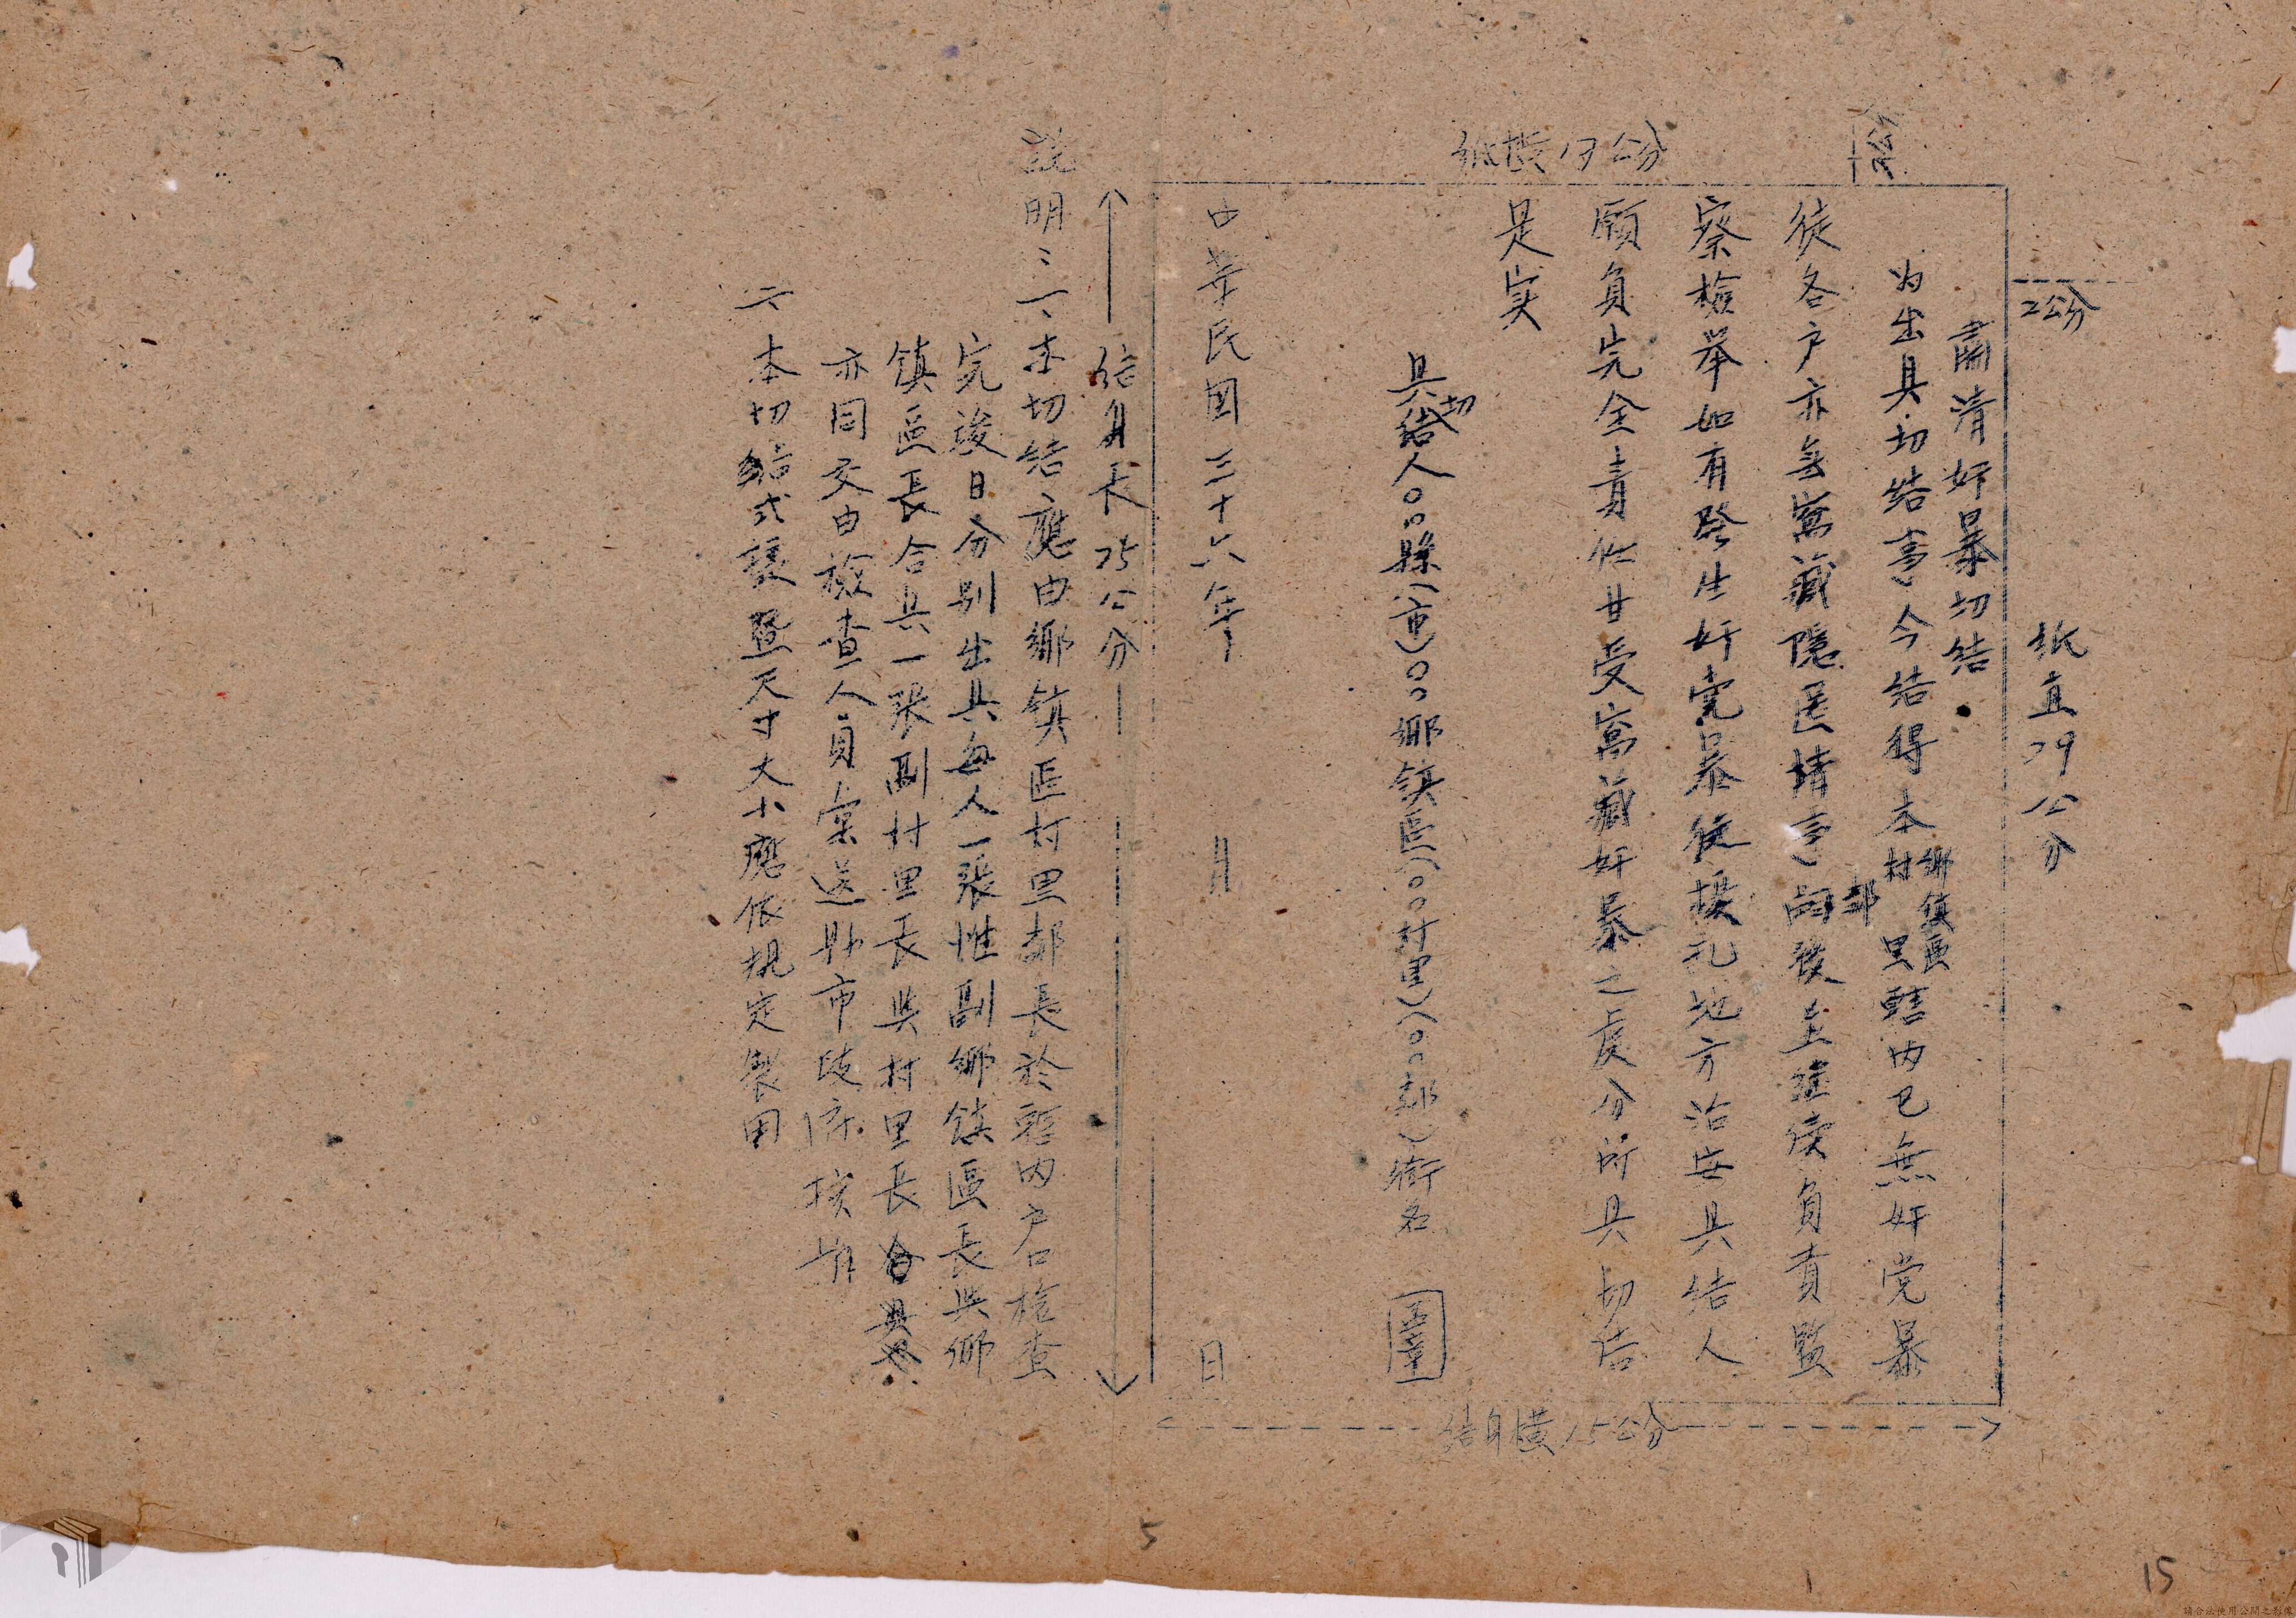 紙直29公分
2公分
紙橫17公分
肅清奸暴切結
为出具切結事今結得本鄉鎮區村里鄰轄內已無奸党暴
徒各户亦無窩藏隱匿情事嗣後並繼續負責監
察檢举如有發生奸党暴徒擾乱地方治安具結人
願負完全責任甘受窩藏奸暴之處分所具切结
是实
具切結人〇〇縣(市)〇〇鄉鎮區(〇〇村里)(〇〇鄰)銜名 蓋章
中華民國三十六年 月 日
結身橫15公分
結身長25公分
說明:一、本切結應由鄉鎮區村里鄰長於轄內户口檢查
完後日分别出具每人一張惟副鄉鎮區長與鄉
鎮區長合具一張副村里長與村里長合具
亦同交由檢查人員彙送縣市政府核備
二、本切結式樣暨尺寸大小應依規定製用
5
15
請合法使用公開之影像